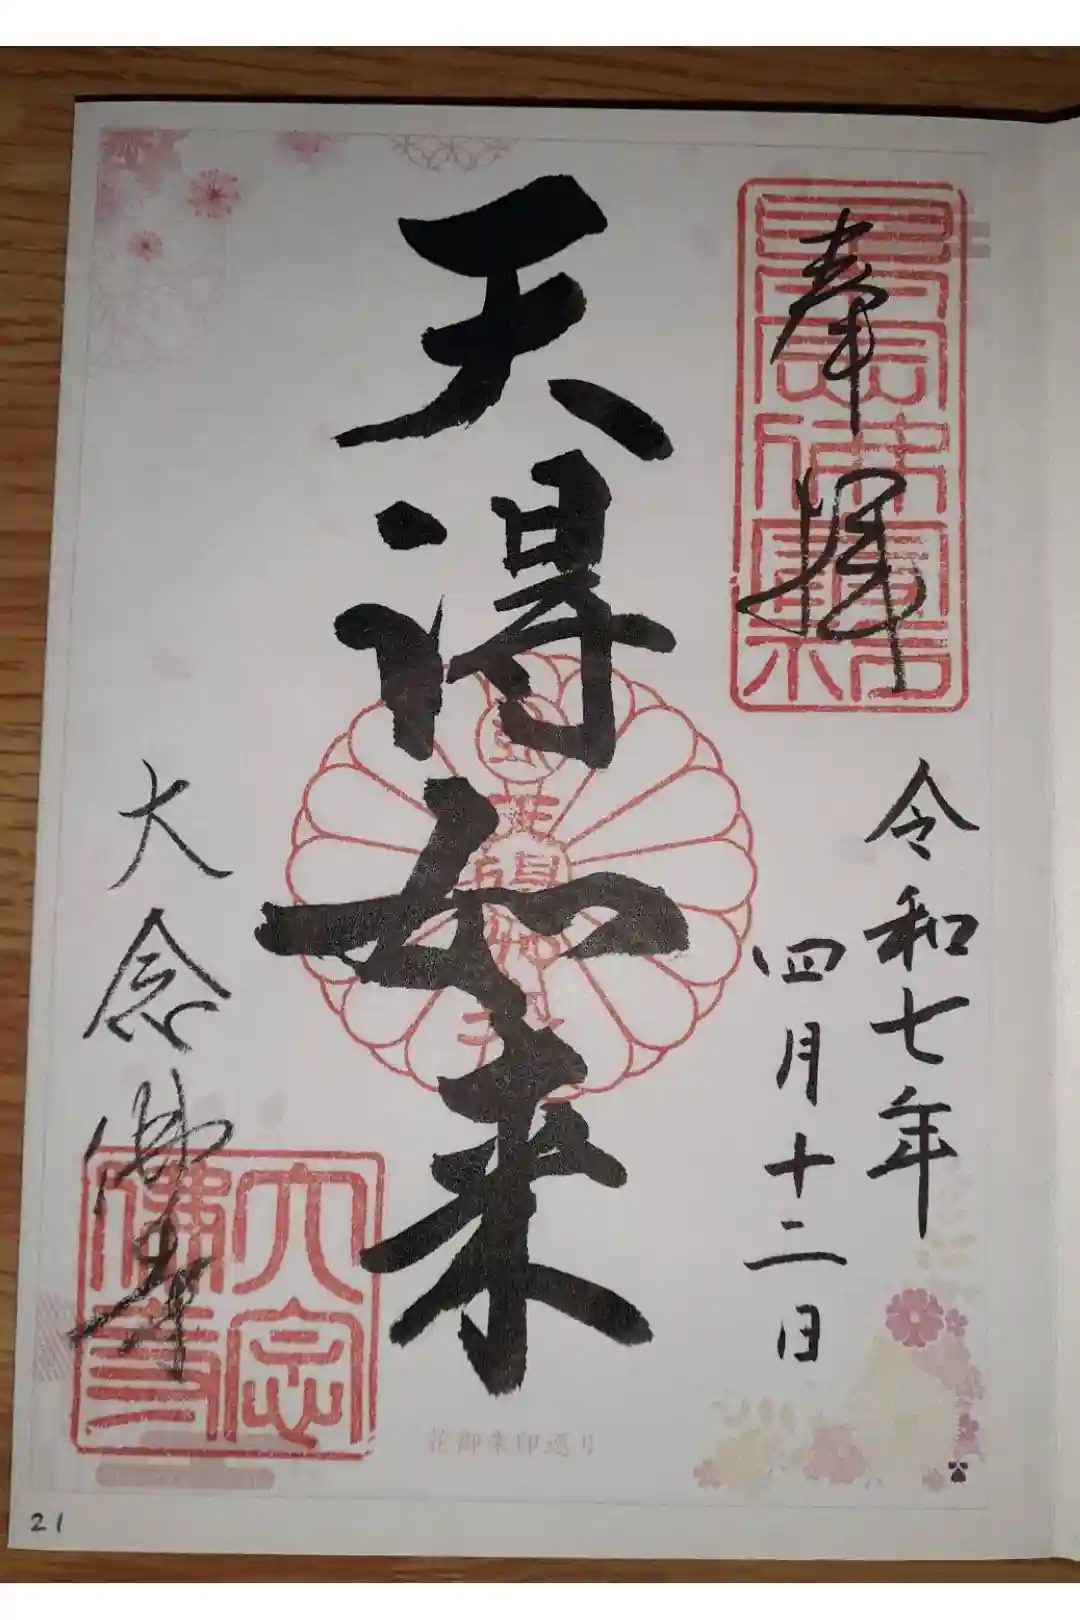 奉拝
令和七年
四月十二日
天得如来
大念佛寺
大念
佛寺
花御朱印巡り
21